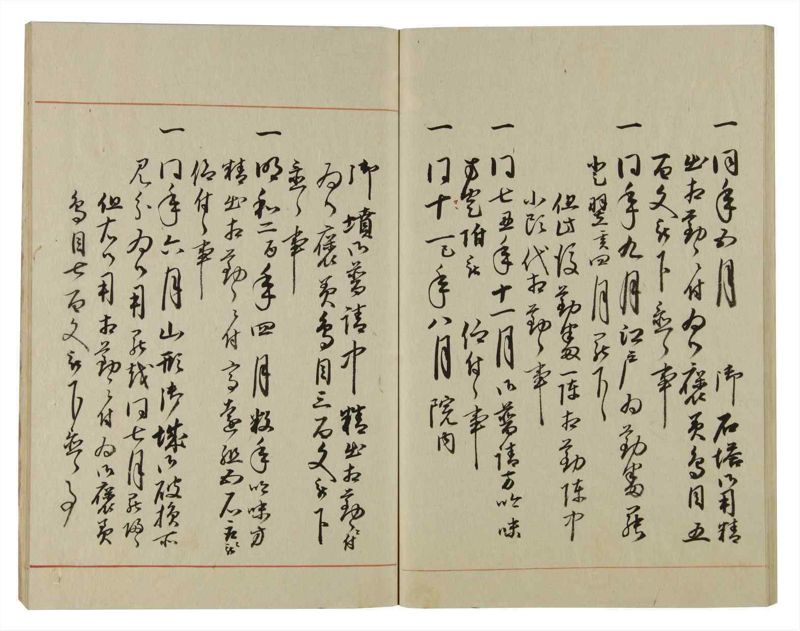 一同年五月 御石塔御用精
出相勤候付為御褒美鳥目五
百文被下置候事
一同年九月江戸為勤番罷
登翌亥四月罷下ル
但此役勤番一陣相勤陣中
小頭代相勤候事
一同七丑年十一月御普請方吟味
仰付候事
一同十一巳年八月院内
御墳御普請中精出相勤候付
為御褒美鳥目三百文被下
置候事
一明和二酉年四月数年吟味方
精出相勤候付
仰付候事
一同年六月山形御城御破損所
見分為御用罷越同七月罷帰
但右御用相勤候付為御褒美
鳥目七百文被下置候事